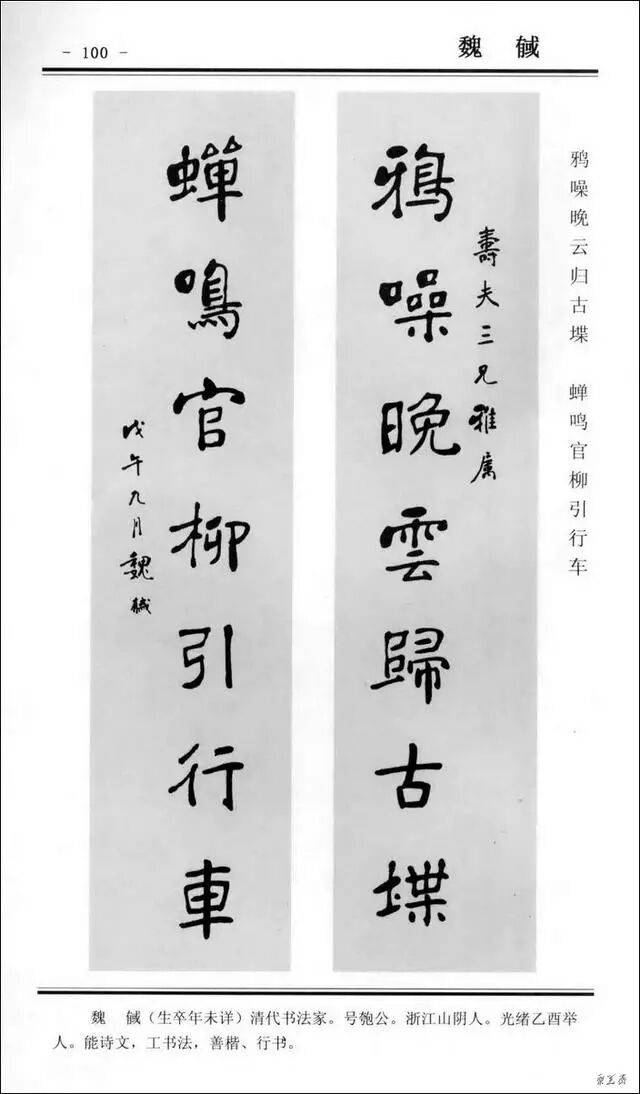 - 100 -
魏 馘
鸦噪晚云归古堞 蝉鸣官柳引行车
壽夫三兄雅属
鴉噪晚雲歸古堞
蟬鳴官柳引行車
戊午九月魏馘
魏 馘（生卒年未详）清代书法家。号匏公。浙江山阴人。光绪乙酉举
人。能诗文，工书法，善楷、行书。